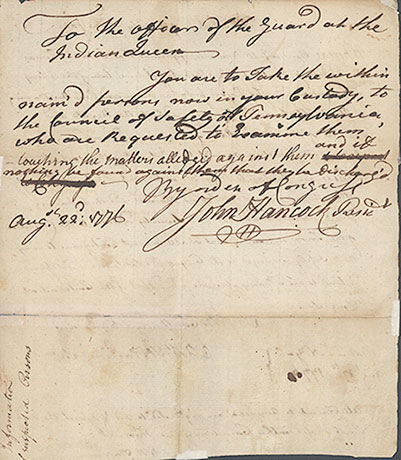 To the officers of the Guard at the
Indian Queen
You are to Take the within
nam'd persons now in your Custody, to
the Council of Safety of Pennsylvania
who are Requested to Examine them,
touching the matters alledged against them and if
nothing be found against them that they be discharg'd
By order of Congress
John Hancock Presid.t
Aug.st 22.d 1776
Information
suspected Persons